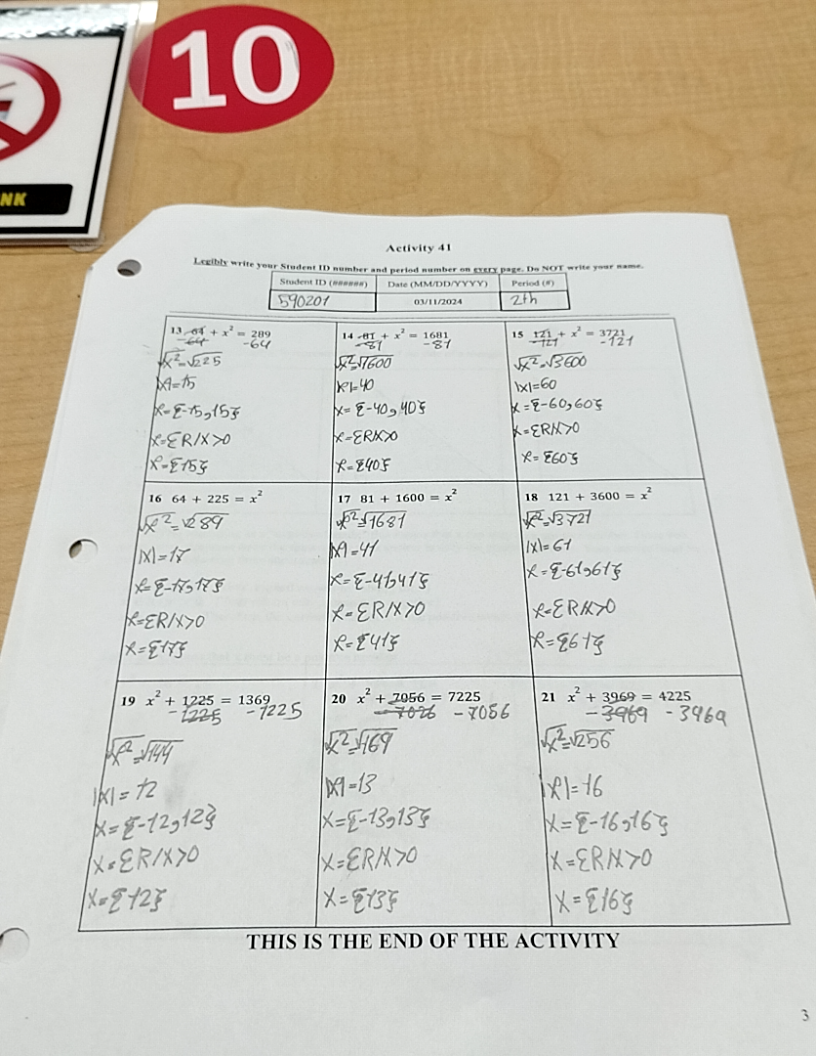 10
NK
Activity 41
Legibly write your Student ID number and period number on every page. Do NOT write your name.
Student ID (######) Date (MM/DD/YYYY) Period (#)
590201 03/11/2024 2th
13 64 + x² = 289
-64 -64
√x²=√225
|x|=15
x={-15,15}
x={R/x>0
x={15}
14 81 + x² = 1681
-81 -81
√x²=√1600
|x|=40
x={-40,40}
x={R/x>0
x={40}
15 121 + x² = 3721
-121 -121
√x²=√3600
|x|=60
x={-60,60}
x={R/x>0
x={60}
16 64 + 225 = x²
√x²=√289
|x|=17
x={-17,17}
x={R/x>0
x={17}
17 81 + 1600 = x²
√x²=√1681
|x|=41
x={-41,41}
x={R/x>0
x={41}
18 121 + 3600 = x²
√x²=√3721
|x|=61
x={-61,61}
x={R/x>0
x={61}
19 x² + 1225 = 1369
-1225 -1225
√x²=√144
|x|=12
x={-12,12}
x={R/x>0
x={12}
20 x² + 7056 = 7225
-7056 -7056
√x²=√169
|x|=13
x={-13,13}
x={R/x>0
x={13}
21 x² + 3969 = 4225
-3969 -3969
√x²=√256
|x|=16
x={-16,16}
x={R/x>0
x={16}
THIS IS THE END OF THE ACTIVITY
3